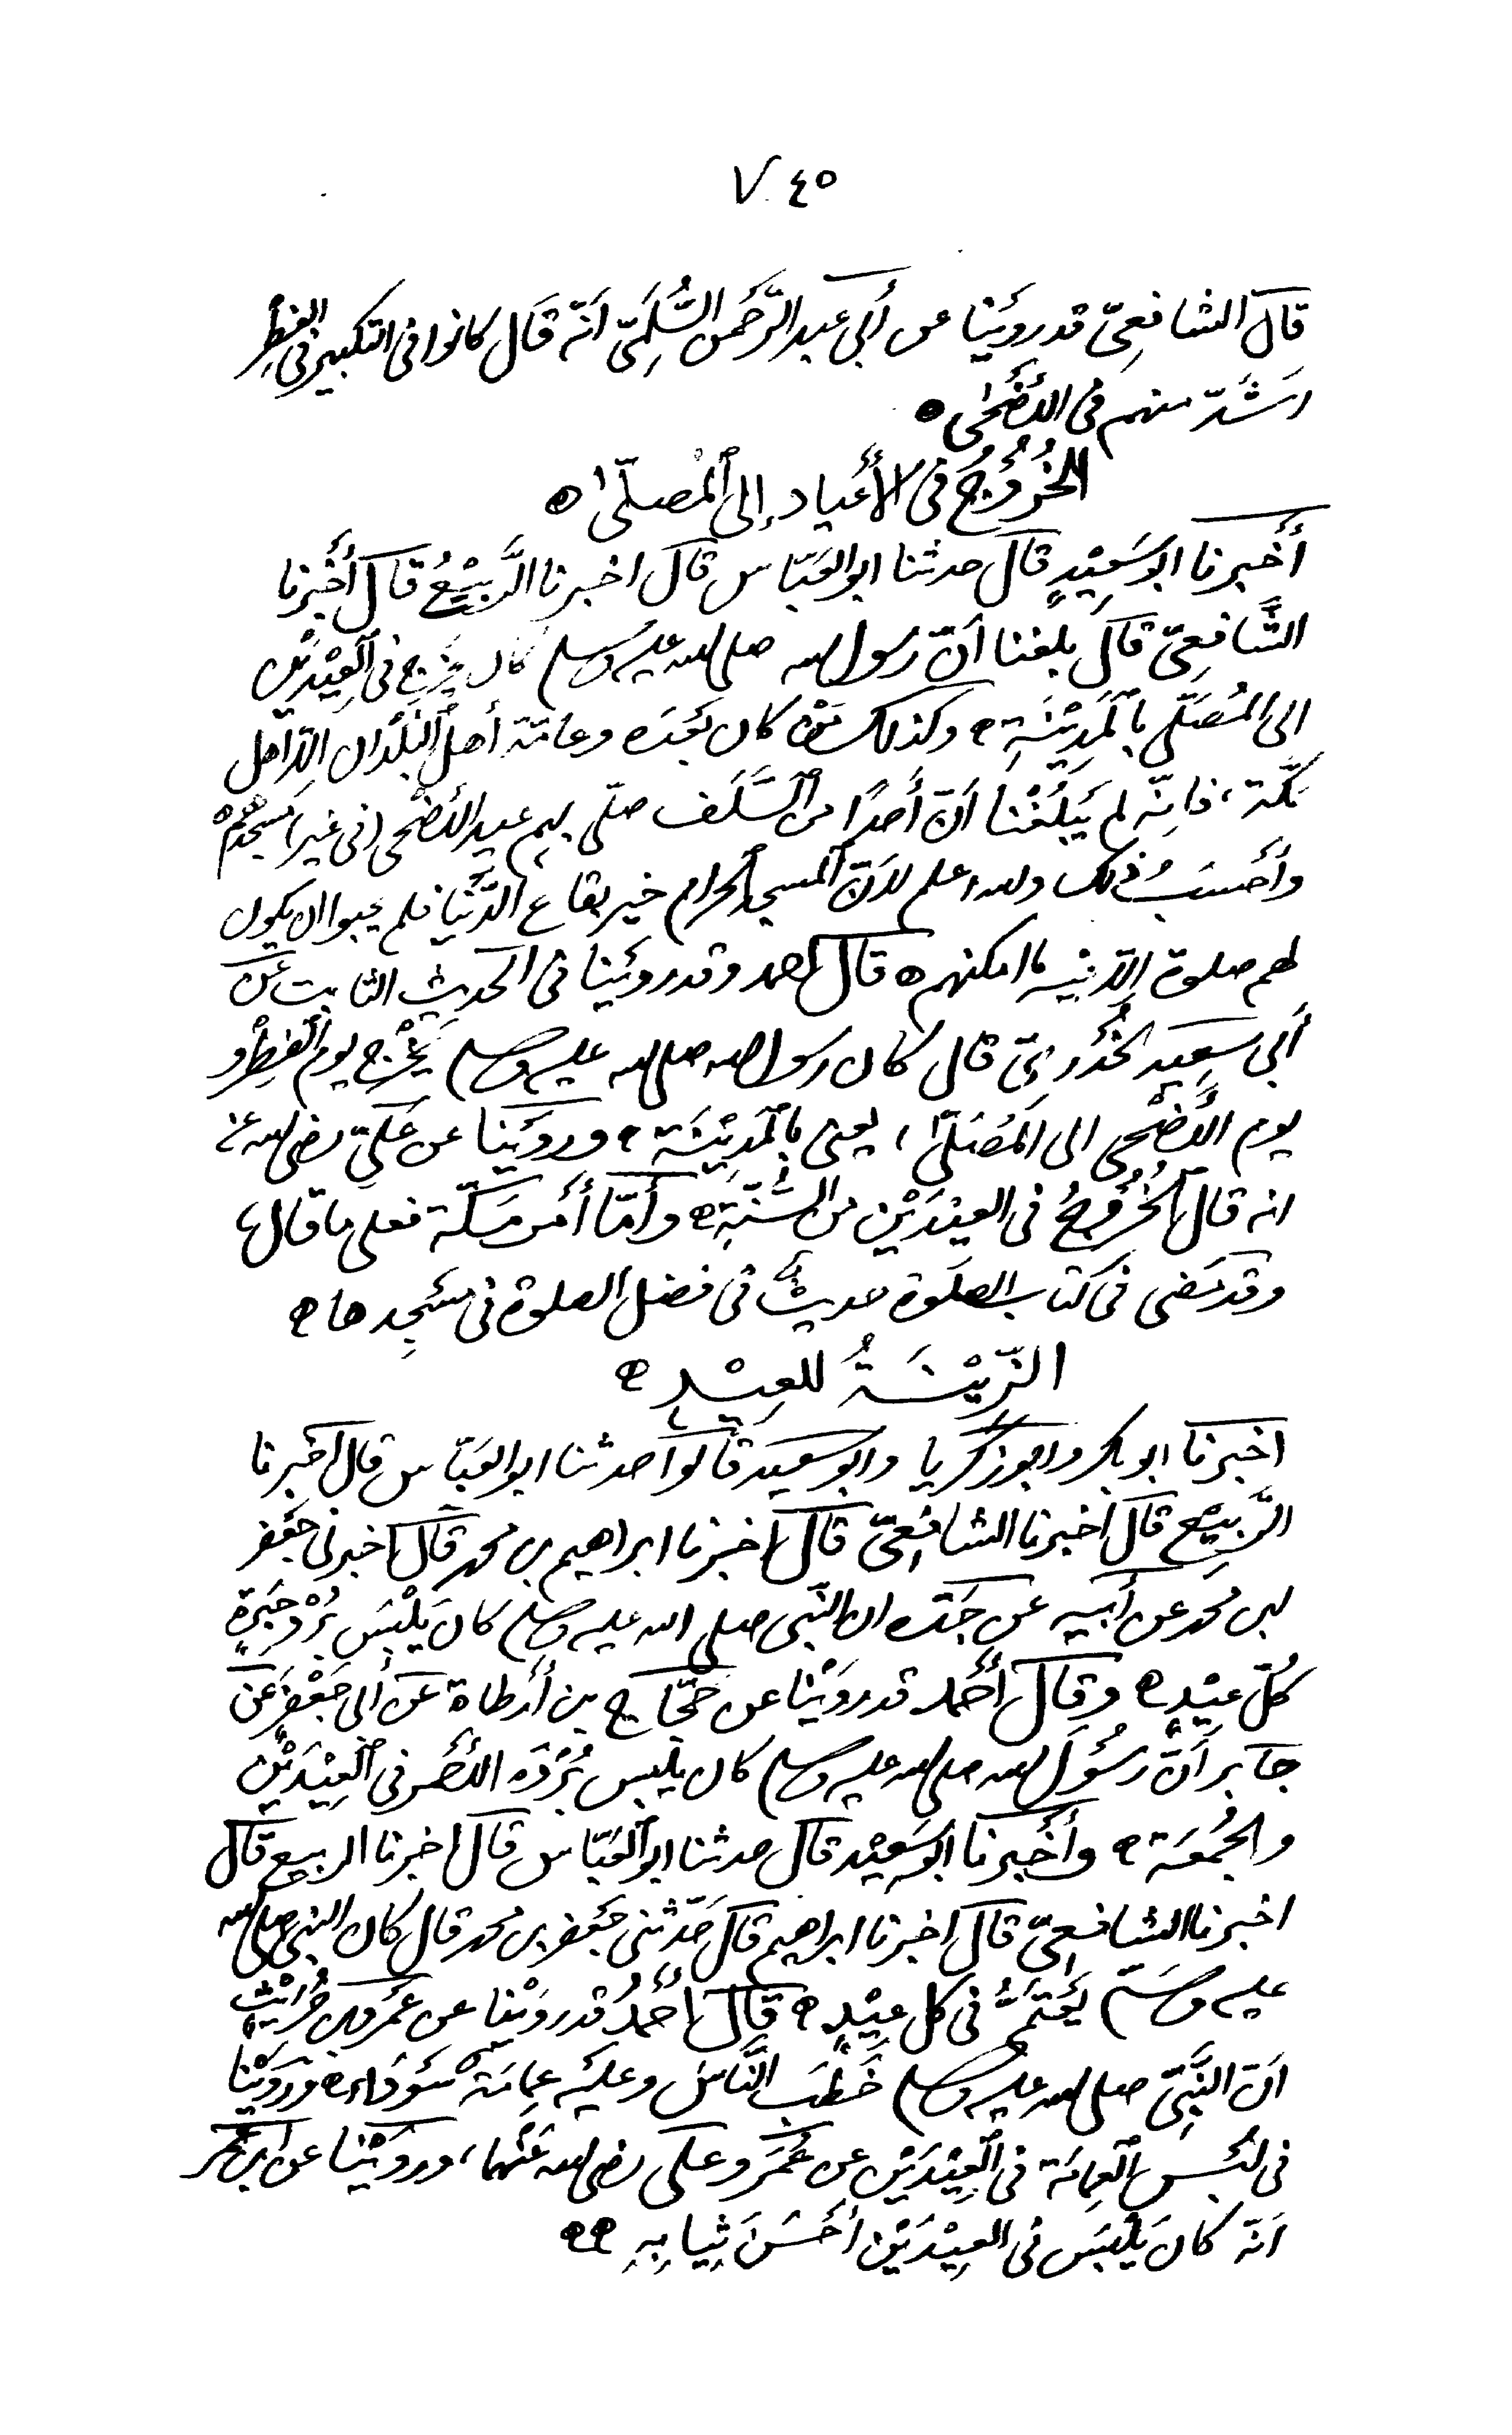 ٧٤٥
قال الشافعِيّ قد روَينا عن أبي عبد الرَّحمَن السُّلَمِيّ اَنّه قَال كانوا في التكبير في الفِطِر
اشَدّ منهم في الأضْحٰى ه
الخُرُوْجُ في الأعْيادِ إلى المُصلّىٰ ه
أخْبرنا ابو سَعِيْدٍ قال حدثنا ابو العَبّاس قال اخبرنا الرَّبِيْعُ قال أخْبرنا
الشَّافِعِيّ قال بلغنا أنّ رسول الله صلى الله عليه وسلم كان يخرج في العِيْدَيْن
الى المُصَلّى بالمَدِيْنَةِ ه وكذلك مَنْ كان بَعْدَه وعامّة أهل البُلْدَان الّا أهل
مَكّة، فانّه لم يَبْلُغْنا أنّ أحدًا من السَّلَف صلّى بهم عيد الأضْحى (في غير) مَسْجِدِهْم
وأحْسَبُ ذلك والله اعلم لانّ المسجد الحرام خير بقاع الدُّنْيا فلم يحبوا ان يكون
لهم صلوة الّا فيه ما امكنهم ه قال احمد وقد روَينا في الحديث الثابت عَنْ
أبي سَعِيد الخُدْرِيّ قال كان رسول الله صلى الله عليه وسلم يَخْرج يوم الفِطْر و
يوم الأضْحى الى المُصَلّىٰ، يعني بالمَدِيْنَة ه وروَيْنا عن عَليّ رضى الله عنه
انه قال الخُرُوجُ في العِيْدَيْن من السُّنّةِ ه وأمّا أمْر مَكّة فعلى ما قال،
وقد مَضى في كتاب الصلَوة حديثٌ في فضل الصلوة في مسْجِدها ه
الزِّيْنَةُ للعِيْدِ ه
اخبرنا ابو بكر وابو زكريا وابو سعيد قالوا حدثنا ابو العَبّاس قال اخبرنا
الرَّبِيْع قال اخبرنا الشافِعِيّ قال اخبرنا ابراهيم بن محمد قال اخبرني جَعْفر
ابن محمد عن أبيه عن جَدّه ان النّبى صلى الله عليه وسلم كانَ يَلْبَسَ بُرْد حِبَرةٍ
كُلّ عِيْدٍ ه وقال أحْمد قد روَيْنا عن حَجّاج بن أرْطاة عن أبي جَعْفر عَنْ
جابر أَنّ رَسُوْلَ الله صلى الله عليه وسلم كان يلبس بُرْدَه الأحْمر في العِيْدَيْن
والجُمُعَة ه وأخْبرنا ابو سَعِيْد قال حدثنا ابو العَبّاس قال اخبرنا الربيع قال
اخبرنا الشافعيّ قال اخبرنا ابراهيم قال حَدّثني جَعْفر بن محمد قال كان النبى صلى الله
عليه وسَلّم يَعْتَمُّ في كل عِيْدٍ ه قال احْمدُ قد روَيْنا عن عَمْرو بن حُرَيْثٍ
اَنّ النَّبِيّ صلى الله عليه وسلم خَطَبَ النَّاسَ وعليْه عِمامَة سَوْداء ه وروَيْنا
في لبْس العِمامَة في العِيْدَيْن عن عُمَر وعلى رضى الله عَنْهما، وروَيْنا عن ابن عُمر
اَنّه كانَ يَلْبَسَ في العِيْدَيْن أحْسَنَ ثِيابِهِ ه ه